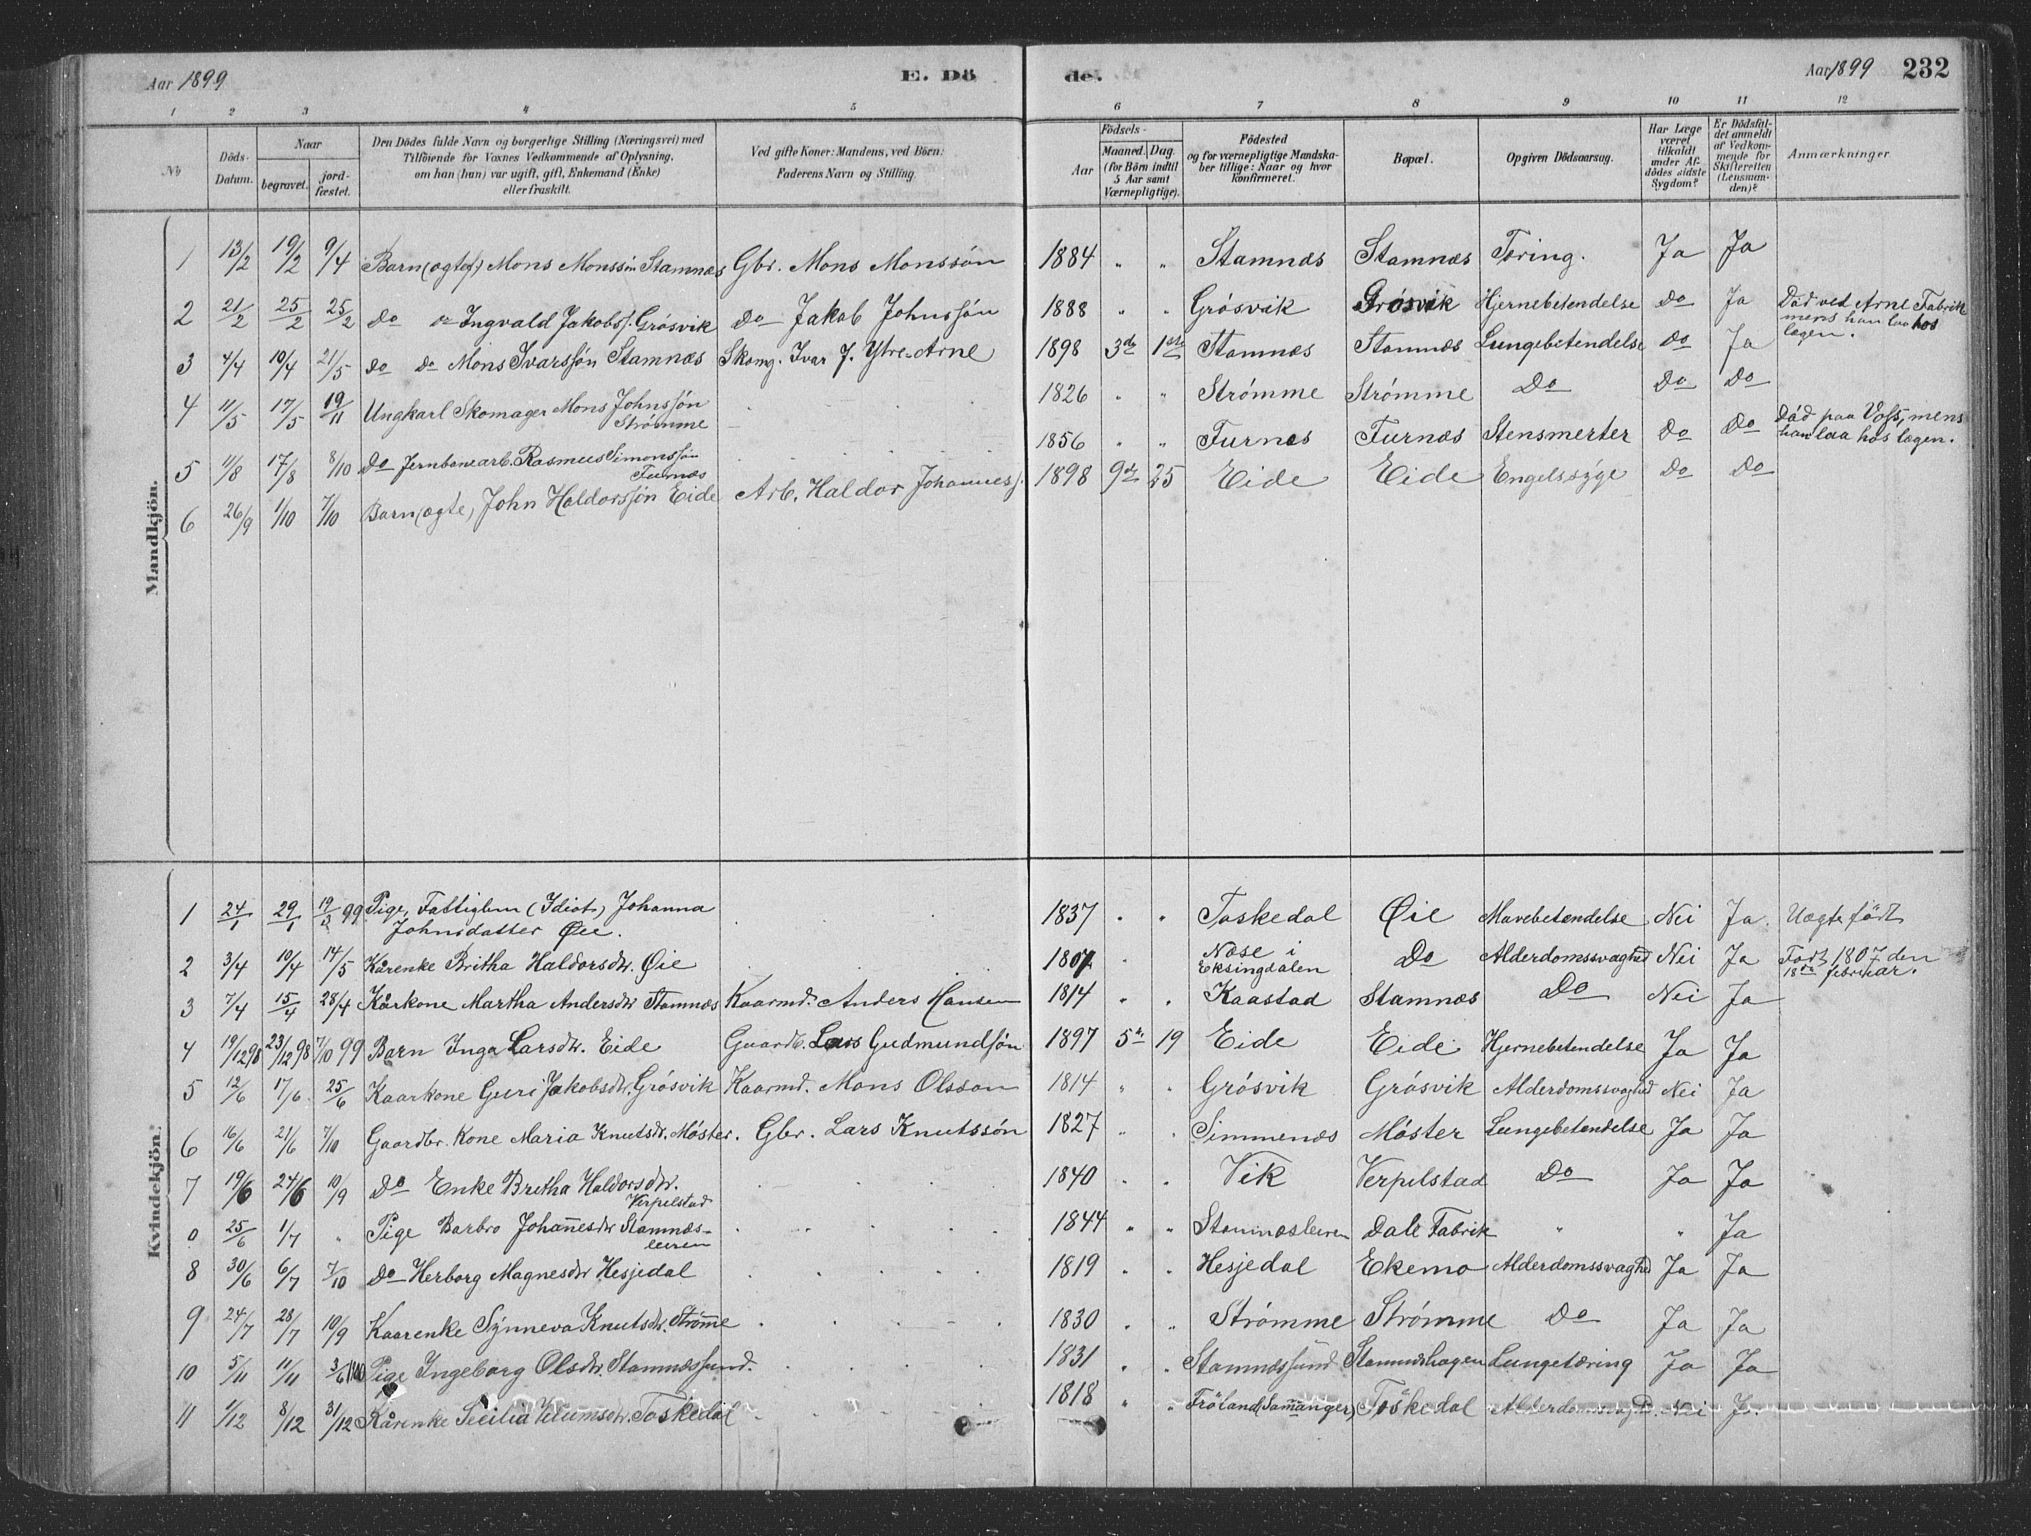 Aar 1899 E. Dö
de. Aar 1899 232
1 2 3 4 5
6 7 8 9 10 11 12
No
Döds-
Datum.
Naar
begravet.
jord-
fæstet.
Den Dödes fulde Navn og borgerlige Stilling (Næringsvei) med
Tilföiende for Voxnes Vedkommende af Oplysning,
om han (hun) var ugift, gift, Enkemand (Enke)
eller fraskilt.
Ved gifte Koner: Mandens, ved Börn:
Faderens Navn og Stilling.
Födsels-
Aar
Maaned. Dag.
(for Börn indtil
5 Aar samt
Værnepligtige).
Födested
og for værnepligtige Mandska-
ber tillige: Naar og hvor
konfirmeret.
Bopæl.
Opgiven Dödsaarsag.
Har Læge
været
tilkaldt
under Af-
dödes sidste
Sygdom?
Er Dödsfal-
det anmeldt
af Vedkom-
mende for
Skifteretten
(Lensman-
den)?
Anmærkninger.
Mandkjön.
1 13/2 19/2 9/4 Barn (ægtef) Mons Monssön Stamnæs Gbr. Mons Monssön 1884 " " Stamnæs Stamnæs Tæring. Ja Ja
2 21/2 25/2 25/2 Do Do Ingvald Jakobss. Grøsvik Do Jakob Johnssøn 1888 " " Grøsvik Grøsvik Hjernebetendelse Do Ja Død ved Arne Fabrik
mens han laa hos
lægen.
3 4/4 10/4 21/5 Do Do Mons Ivarssøn Stamnæs Skomg. Ivar J. Ytre-Arne 1898 3de 1ste Stamnæs Stamnæs Lungebetendelse Do Ja
4 11/5 17/5 19/11 Ungkarl Skomager Mons Johnssøn
Strømme 1826 " " Strømme Strømme Do Do Do
5 11/8 17/8 8/10 Do Jernbanearb. Rasmus Simonssøn
Furnæs 1856 " " Furnæs Furnæs Stensmerter Do Do Død paa Voss, mens
han laa hos lægen.
6 26/9 1/10 7/10 Barn (ægte) John Haldorssøn Eide Arb. Haldor Johanness. 1898 9de 25 Eide Eide Engelsksyge Do Do
Kvindekjön.
1 24/1 29/1 19/3 99 Pige, Fattiglem (Idiot) Johanna
Johnsdatter Øie. 1837 " " Toskedal Øie Mavebetendelse Nei Ja. Uægte født
2 3/4 10/4 14/5 Kårenke Britha Haldorsdtr. Øie 1807 " Næse i
Eksingdalen Do Alderdomssvaghed Nei Ja Født 1807 den
18de februar.
3 7/4 15/4 28/4 Kårkone Martha Andersdtr Stamnæs Kaarmd. Anders Hansen 1814 " " Kaastad Stamnæs Do Nei Ja
4 19/12 98 23/12 98 7/10 99 Barn Inga Larsdtr. Eide Gaardb. Lars Gudmundsøn 1897 5te 19 Eide Eide Hjernebetendelse Ja Ja
5 12/6 17/6 25/6 Kaarkone Guri Jakobsdtr. Grøsvik Kaarmd. Mons Olsson 1814 " " Grøsvik Grøsvik Alderdomssvaghed Nei Ja
6 16/6 21/6 7/10 Gaardbr. Kone Maria Knutsdtr. Møster. Gbr. Lars Knutssøn 1827 " " Simmenæs Møster Lungebetendelse Ja Ja
7 19/6 24/6 10/9 Do Enke Britha Haldorsdtr.
Verpilstad 1840 " " Vik Verpilstad Do Ja Ja
0 25/6 1/7 " Pige Barbro Johannesdtr Stamnæs-
leiren 1844 " " Stamnæsleiren Dale Fabrik " " Ja
8 30/6 6/7 7/10 Do Herborg Magnesdtr Hesjedal 1819 " " Hesjedal Ekemo Alderdomssvaghed Ja Ja
9 24/7 28/7 10/9 Kaarenke Synneva Knutsdtr. Strømme 1830 " " Strømme Strømme Do Ja Ja
10 5/11 11/11 3/6 Pige Ingeborg Olsdtr. Stamnæssund. 1831 " " Stamnæssund Stamnæshagen Lungetæring Ja Ja
11 1/12 8/12 31/12 Kårenke Secilia Toskedal 1818 " " Frøland (Samnanger) Toskedal Alderdomssvaghd. Nei Ja.